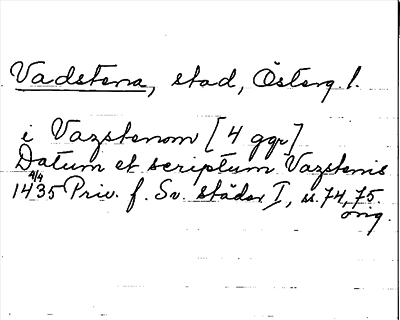 Vadstena, stad, Österg. l.
i Vazstenom [4 ggr]
Datum et scriptum Vazstenis
4/4
1435 Priv. f. Sv. städer I, s. 74, 75.
orig.